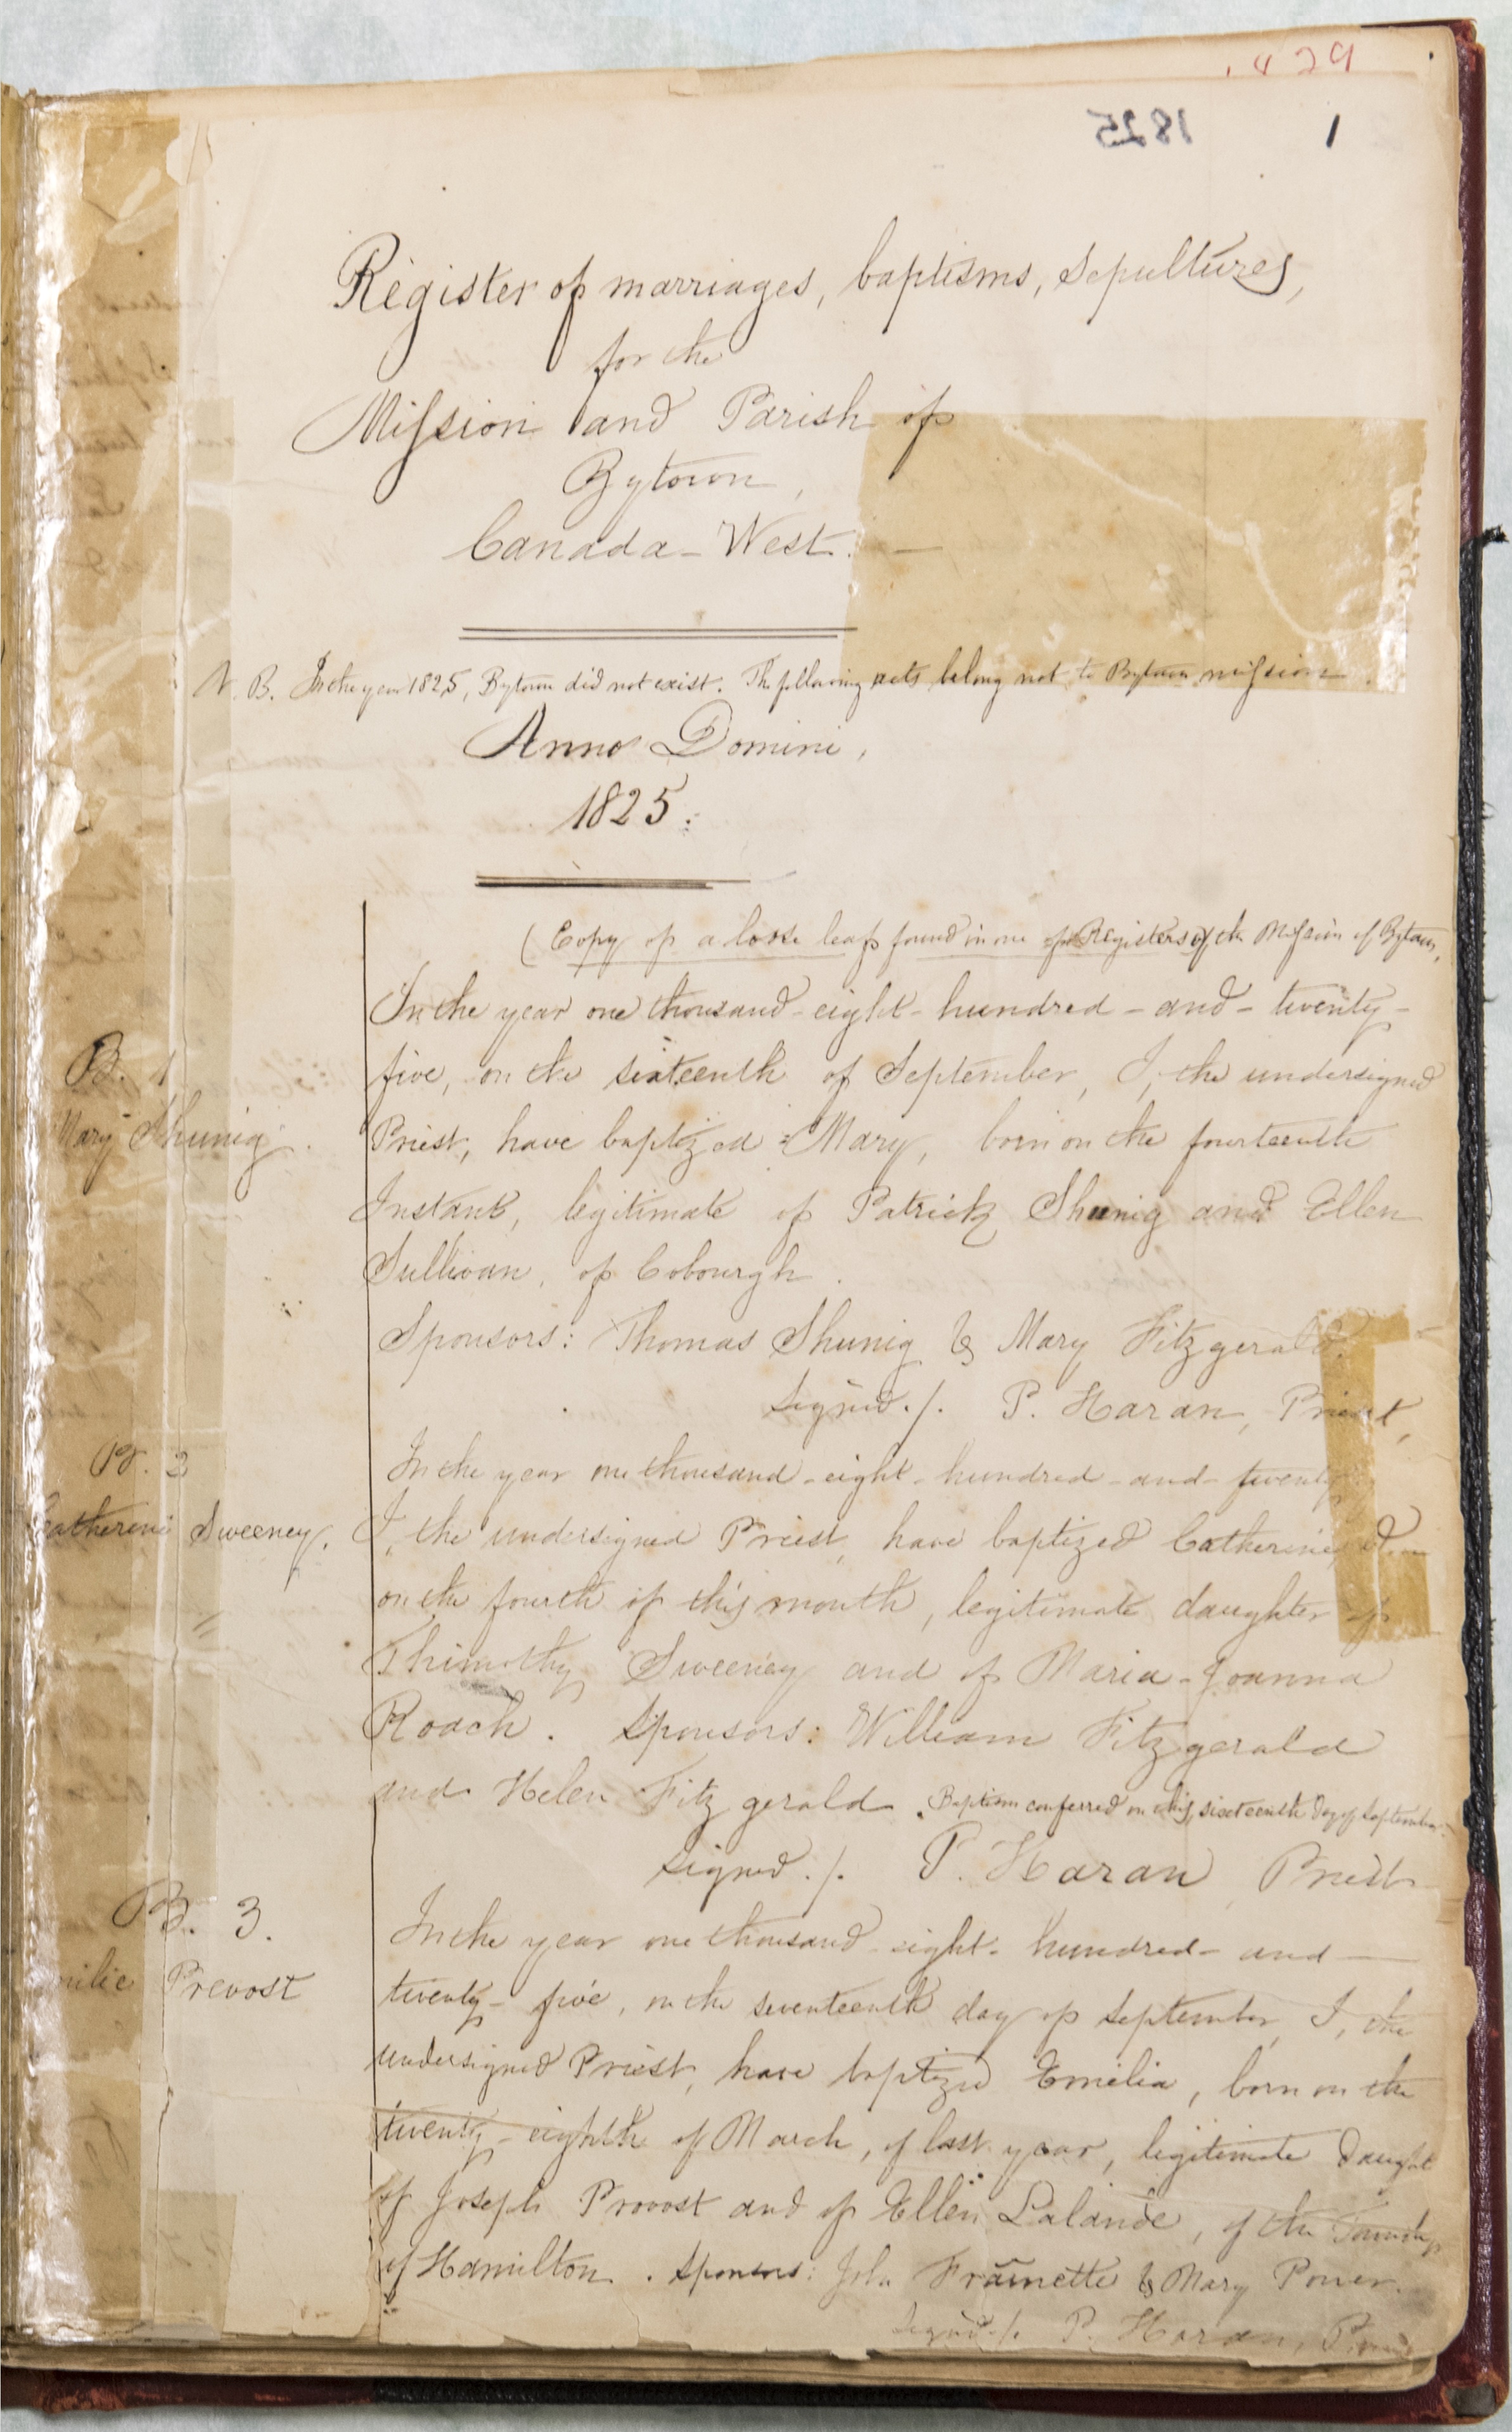 1829
1825
1
Register of marriages, baptisms, sepultures,
for the
Mission and Parish of
Bytown,
Canada-West.
N. B. In the year 1825, Bytown did not exist. The following acts belong not to Bytown mission.
Anno Domini,
1825.
(Copy of a loose leaf found in one of Registers of the Mission of Bytown,
In the year one thousand-eight-hundred-and-twenty-
B. 1
five, on the sixteenth of September, I, the undersigned
Mary Shunig.
Priest, have baptized Mary, born on the fourteenth
Instant, legitimate of Patrick Shunig and Ellen
Sullivan, of Cobourgh.
Sponsors: Thomas Shunig & Mary Fitzgerald.
Signed ./. P. Haran, Priest,
B. 2
In the year one thousand-eight-hundred-and-twenty
Catherine Sweeney.
I, the undersigned Priest, have baptized Catherine,
on the fourth of this month, legitimate daughter of
Thimothy Sweeney and of Maria-Joanna
Roach. Sponsors: William Fitzgerald
and Helen Fitzgerald. Baptism conferred on this sixteenth day of September.
signed ./. P. Haran Priest
B. 3.
In the year one thousand-eight-hundred-and
milie Prevost
twenty-five, on the seventeenth day of September, I, the
undersigned Priest, have baptized Emelia, born on the
twenty-eighth of March, of last year, legitimate daught
of Joseph Provost and of Ellen Lalande, of the Township
of Hamilton. Sponsors: John Framette & Mary Power.
Signed ./. P. Haran, Priest